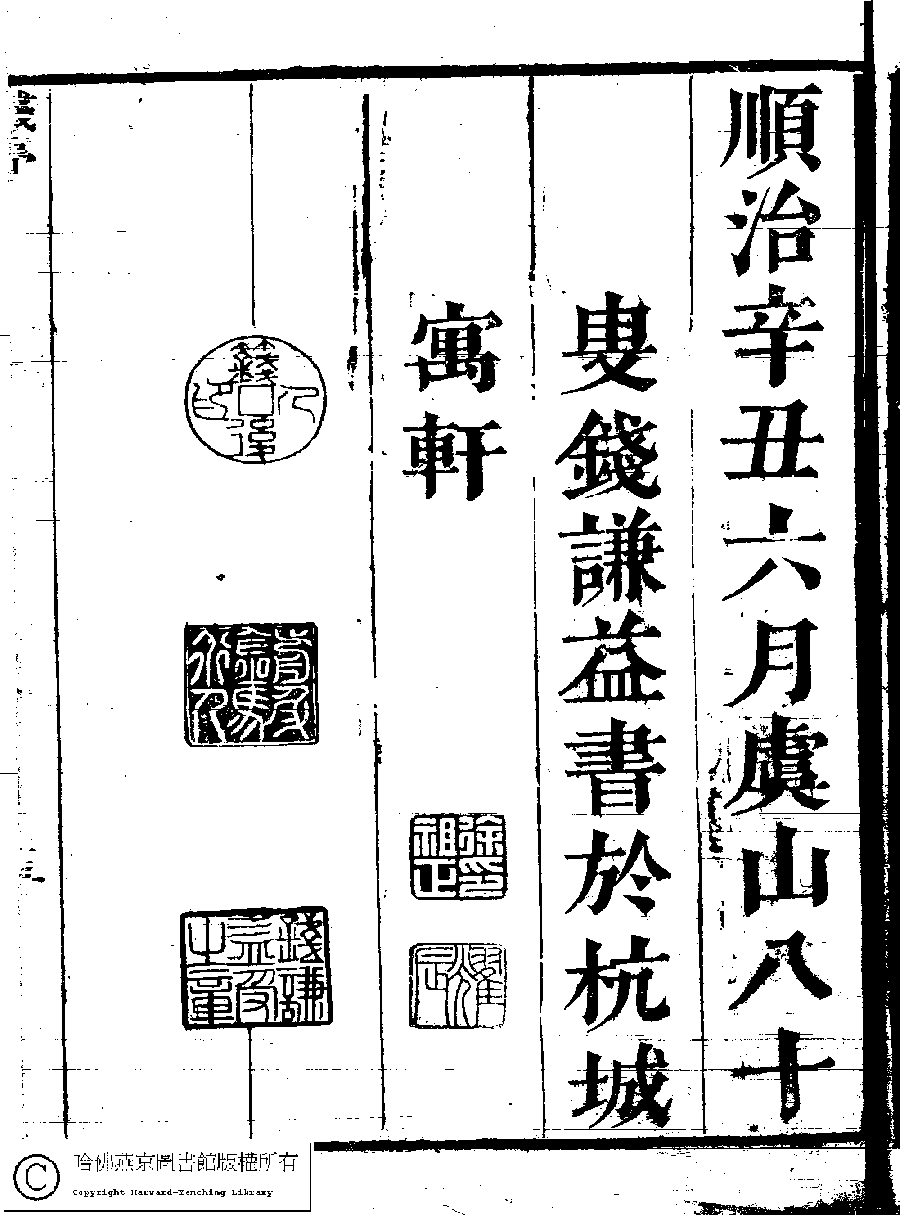 順治辛丑六月虞山八十
叟錢謙益書於杭城
寓軒
徐祖正印
錢謙益受之章
哈佛燕京圖書館版權所有
Copyright Harvard-Yenching Library